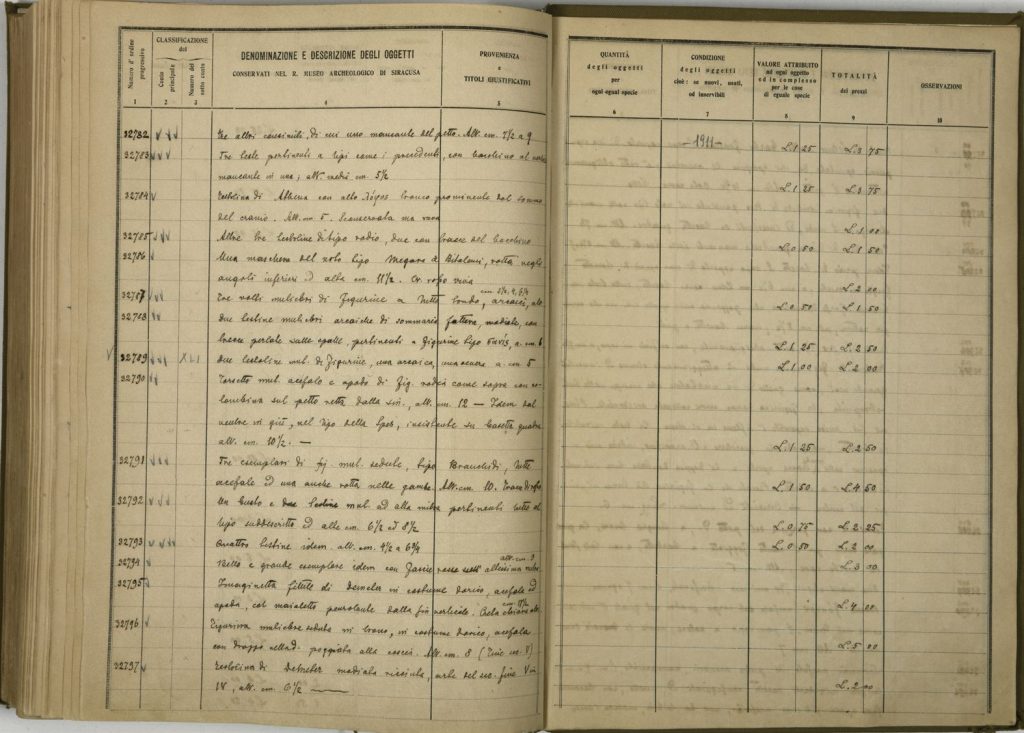 Numero d'ordine progressivo
CLASSIFICAZIONE
del
Conto principale
Numero del sotto conto
DENOMINAZIONE E DESCRIZIONE DEGLI OGGETTI
CONSERVATI NEL R. MUSEO ARCHEOLOGICO DI SIRACUSA
PROVENIENZA
e
TITOLI GIUSTIFICATIVI
1 2 3 4 5
QUANTITÀ
degli oggetti
per
ogni egual specie
CONDIZIONE
degli oggetti
cioè: se nuovi, usati,
od inservibili
VALORE ATTRIBUITO
ad ogni oggetto
ed in complesso
per le cose
di eguale specie
TOTALITÀ
dei prezzi
OSSERVAZIONI
6 7 8 9 10
32782 Tre altri consimili, di cui uno mancante del petto. Alt. cm. 7½ a 9
- 1911 - L. 1 25 L. 3 75
32783 Tre teste pertinenti a tipi come i precedenti, con
mancante in una; alt. media cm. 5½
L. 1 25 L. 3 75
32784 Testolina di Athena con alto λόφος tronco prominente dal sommo
del cranio. Alt. cm 5. Sconservata ma rara
L. 1 00
32785 Altre tre testoline di tipo rodio, due con tracce del
L. 0 50 L. 1 50
32786 Una maschera del noto tipo Megara e Bitalemi, rotta negli
angoli inferiori ed alta cm. 11½.
L. 2 00
32787 Tre volti muliebri di figurine a tutto tondo, arcaici, alt.
L. 0 50 L. 1 50
32788 due testine muliebri arcaiche di sommaria fattura, modiate, con
trecce perlate sulle spalle, pertinenti a figurine tipo a. cm. 6
L. 1 25 L. 2 50
32789 XLI due testoline mul. di figurine, una arcaica, a. cm 5
L. 1 00 L. 2 00
32790 Torsetto mul. acefalo e apodo di fig. rodia come sopra con co-
lombina sul petto retta dalla sin., alt. cm. 12 — Idem dal
ventre in giù, nel tipo della Spes, insistente su basetta quadra
alt. cm. 10½. —
L. 1 25 L. 2 50
32791 Tre esemplari di fig. mul. sedute, tipo Branchidi, tutte
acefale ed una anche rotta nelle gambe. Alt. cm. 10.
L. 1 50 L. 4 50
32792 Un busto e due testine mul. ad alta mitra pertinenti tutte al
tipo suddescritto ed alte cm. 6½ ed 8½
L. 0 75 L. 2 25
32793 Quattro testine idem. alt. cm. 4½ a 6¾
L. 0 50 L. 2 00
32794 Bello e grande esemplare idem con altissima mitra alt. cm. 9
L. 3 00
32795 Imaginetta fittile di Demeter in costume dorico, acefala ed
apoda, col maialetto penzolante dalla
L. 4 00
32796 Figurina muliebre seduta in trono, in costume dorico, acefala
con drappo nella d. poggiata alla coscia. Alt. cm. 8 (fine sec. V)
L. 5 00
32797 Testolina di Demeter modiata arte del sec. fine V in
IV, alt. cm. 6½
L. 2 00